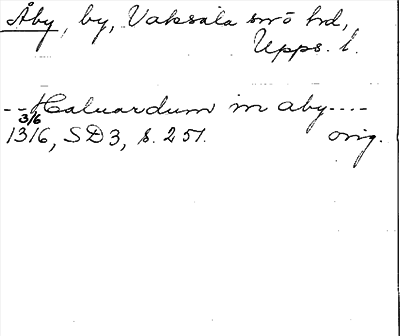 Åby, by, Vaksala sn o hd,
Upps. l.
--Haluardum in aby----
3/6
1316, SD3, s. 251. orig.